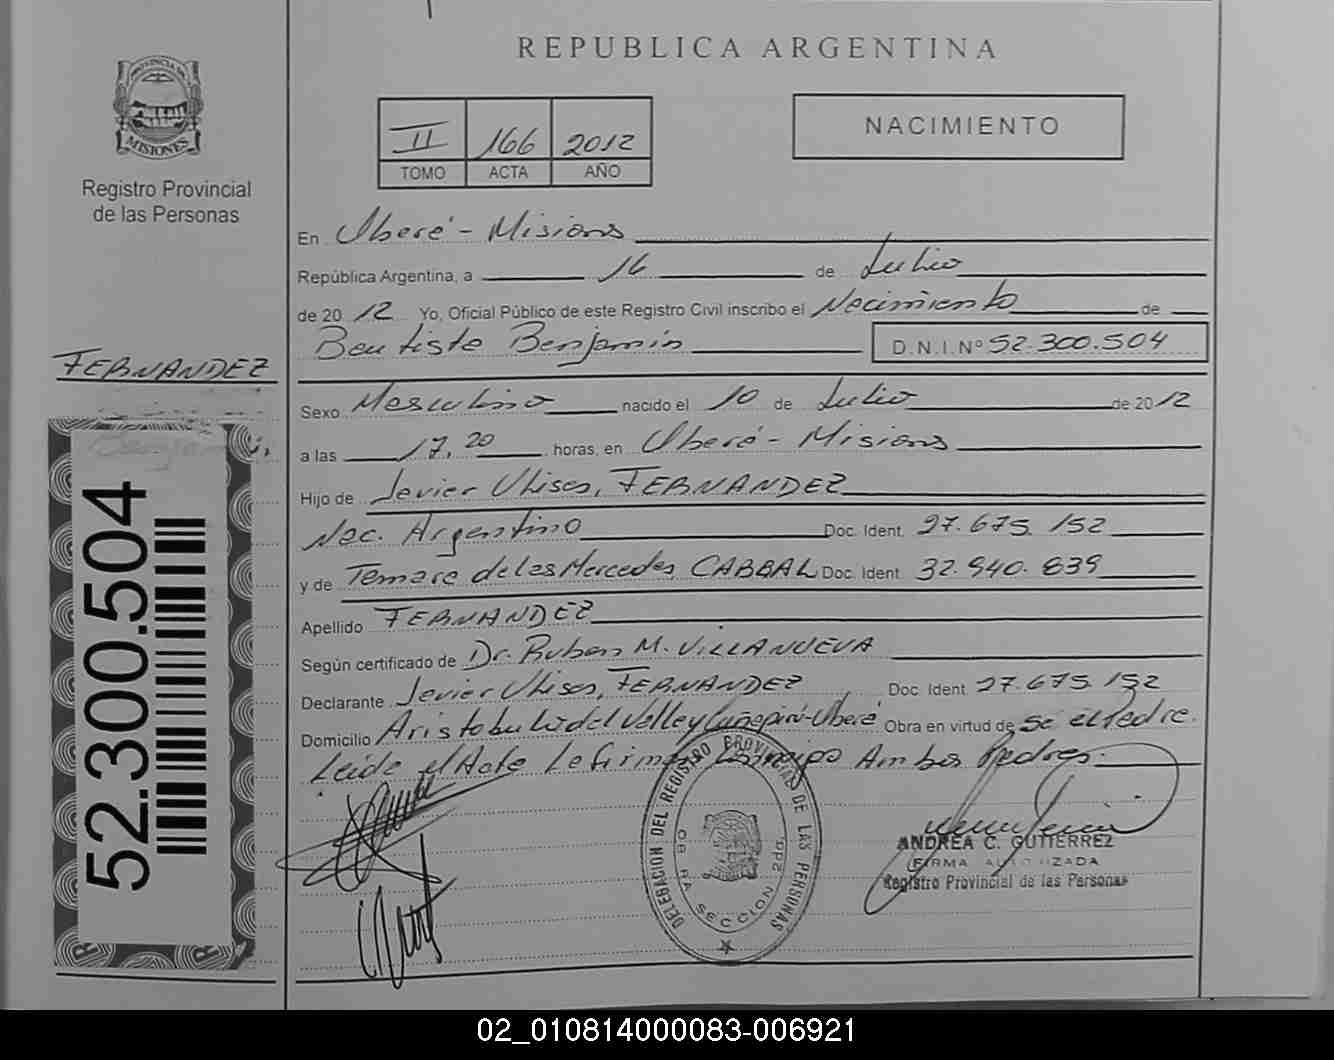 REPUBLICA ARGENTINA
PROVINCIA DE
MISIONES
Registro Provincial
de las Personas
II 166 2012
TOMO ACTA AÑO
NACIMIENTO
En Oberá - Misiones
República Argentina, a 16 de Julio
de 2012 Yo, Oficial Público de este Registro Civil inscribo el Nacimiento de
Bautista Benjamín D.N.I.Nº 52.300.504
FERNANDEZ
Sexo Masculino nacido el 10 de Julio de 2012
a las 17,20 horas, en Oberá - Misiones
Hijo de Javier Ulises, FERNANDEZ
Nac. Argentino Doc. Ident. 27.675.152
y de Tamara de las Mercedes, CABRAL Doc. Ident. 32.940.839
Apellido FERNANDEZ
Según certificado de Dr. Ruben M. VILLANUEVA
Declarante Javier Ulises, FERNANDEZ Doc. Ident. 27.675.152
Domicilio Aristobulo del Valley Oberá Obra en virtud de se el Padre.
Leída el Acta La firman Ambos Padres.
52.300.504
DELEGACION DEL REGISTRO PROVINCIAL DE LAS PERSONAS
OBERA SECCION 2da.
ANDREA C. GUTIERREZ
FIRMA AUTORIZADA
Registro Provincial de las Personas
02_010814000083-006921